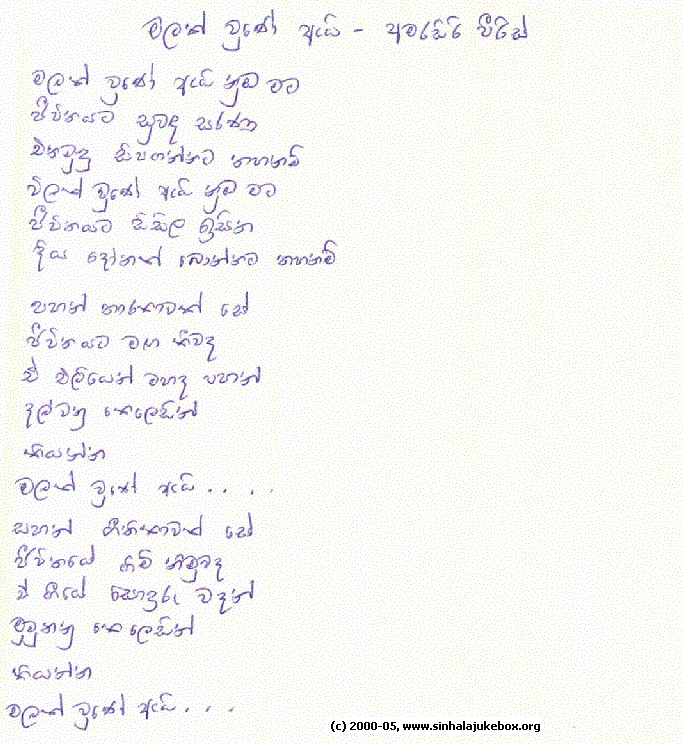 මලක් වුණේ ඇයි - අමරසිරි පීරිස්
මලක් වුණේ ඇයි නුඹ මට
ජීවිතයට සුවඳ සරණ
එනමුදු සිපගන්නට තහනම්
විලක් වුණේ ඇයි නුඹ මට
ජීවිතයට සිසිල ඉසින
දිය දෝතක් බොන්නට තහනම්
පහන් තාරකාවක් සේ
ජීවිතයට මඟ කීවද
ඒ එළියෙන් මහද පහන්
දල්වනු කෙලෙසින්
කියන්න
මලක් වුණේ ඇයි . . . .
සහන් ගීතිකාවක් සේ
ජීවිතයේ හිමි නිමුවද
ඒ ගීයේ සොඳුරු වදන්
මුමුනනු කෙලෙසින්
කියන්න
මලක් වුණේ ඇයි . . .
(c) 2000-05, www.sinhalajukebox.org